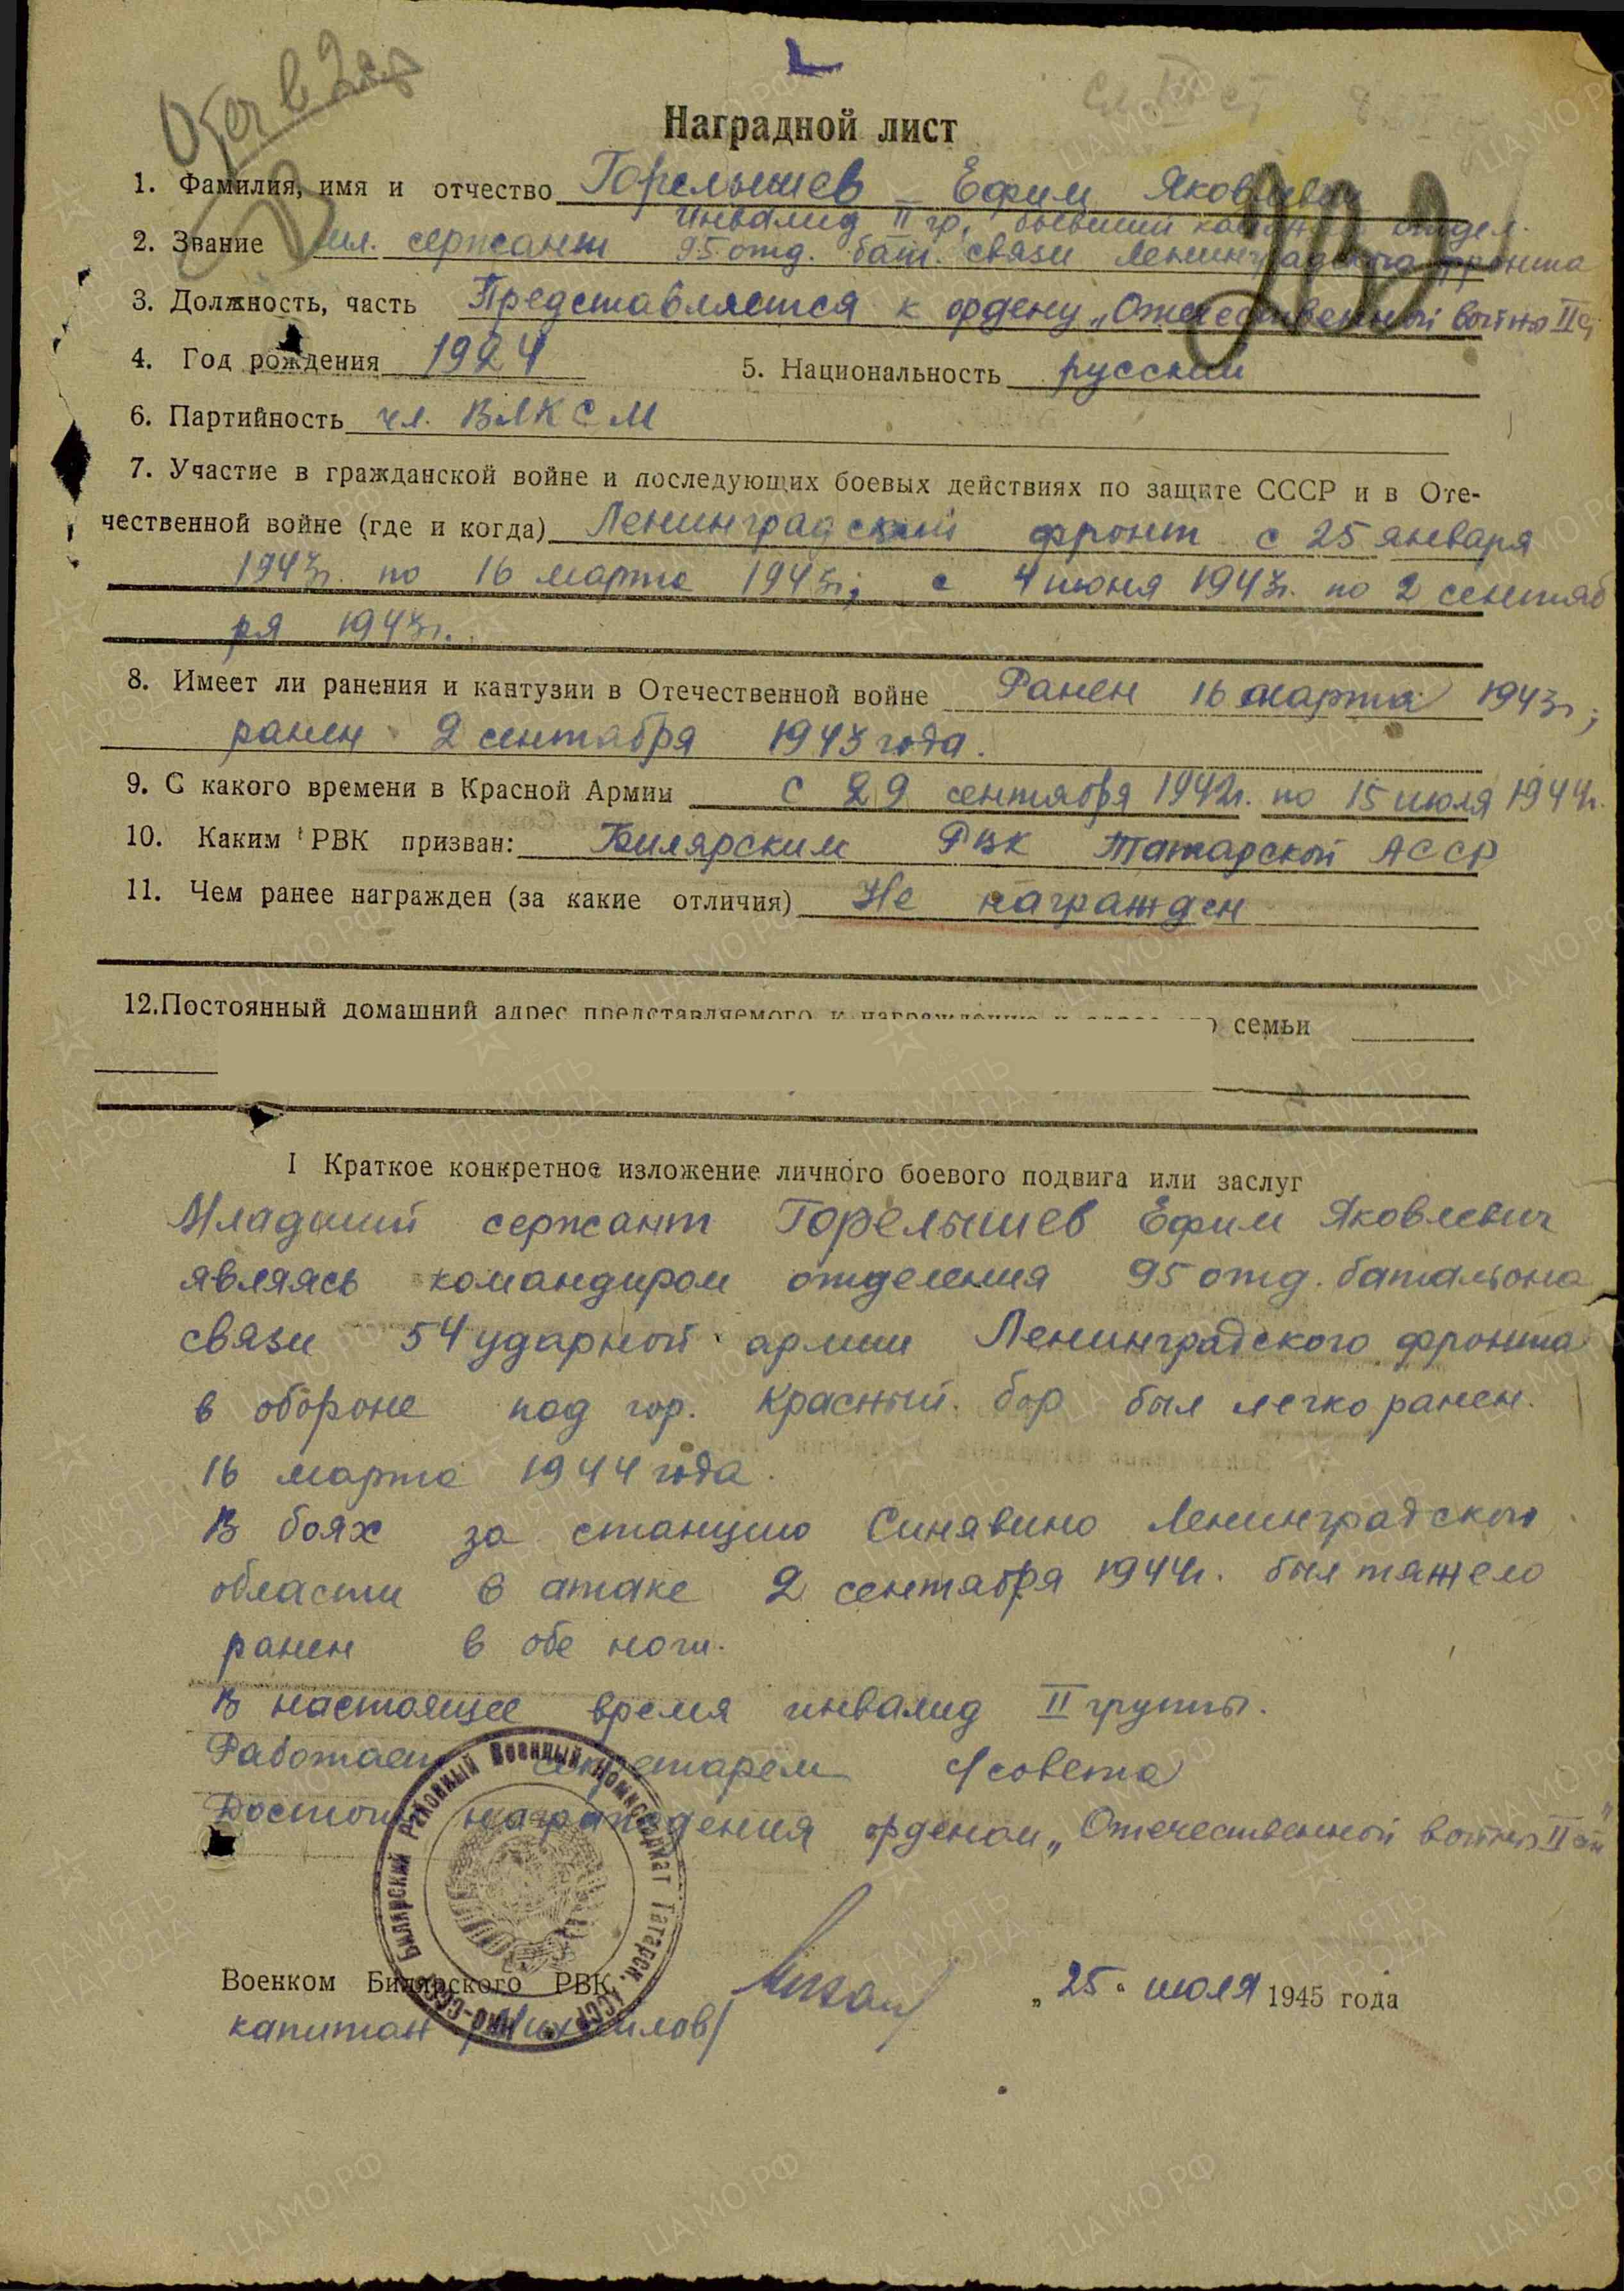 Наградной лист
1. Фамилия, имя и отчество Горелышев Ефим Яковлевич
Инвалид II гр, бывший отдел.
2. Звание мл. сержант 95 отд. бат. связи Ленинградского фронта
3. Должность, часть Представляется к ордену „Отечественной войны II
4. Год рождения 1924 5. Национальность русский
6. Партийность чл. ВЛКСМ
7. Участие в гражданской войне и последующих боевых действиях по защите СССР и в Оте-
чественной войне (где и когда) Ленинградский фронт с 25 января
1943г. по 16 марта 1943г; с 4 июня 1943г. по 2 сентяб
ря 1943г.
8. Имеет ли ранения и кантузии в Отечественной войне Ранен 16 марта 1943г;
ранен 2 сентября 1943 года.
9. С какого времени в Красной Армии с 29 сентября 1942г. по 15 июля 1944г.
10. Каким РВК призван: Билярским РВК Татарской АССР
11. Чем ранее награжден (за какие отличия) Не награжден
12. Постоянный домашний адрес представляемого к награждению и адрес его семьи
I Краткое конкретное изложение личного боевого подвига или заслуг
Младший сержант Горелышев Ефим Яковлевич
являясь командиром отделения 95 отд. батальона
связи 54 ударной армии Ленинградского фронта
в обороне под гор. Красный бор был легко ранен.
16 марта 1944 года.
В боях за станцию Синявино Ленинградской
области в атаке 2 сентября 1944г. был тяжело
ранен в обе ноги.
В настоящее время инвалид II группы.
Работает секретарем с/совета
Достоин награждения орденом „Отечественной войны II ст"
Военком Билярского РВК
капитан /Михайлов/ „25" июля 1945 года
Билярский Районный Военный Комиссариат Татарск. АССР НКО-СССР
ПАМЯТЬ НАРОДА
ЦАМО РФ